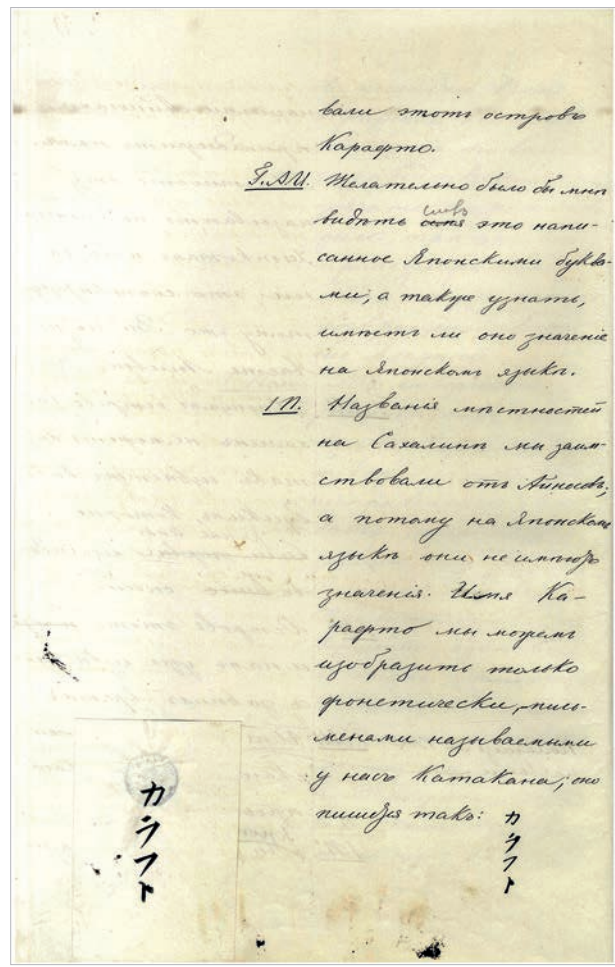 вали этотъ островъ
Карафто.
Г.А.И. Желательно было бы мнѣ
видѣть слово это напи-
санное Японскими буква-
ми, а также узнать,
имѣетъ ли оно значеніе
на Японскомъ языкѣ.
1 Я. Названія мѣстностей
на Сахалинѣ мы заим-
ствовали отъ Айносовъ;
а потому на Японскомъ
языкѣ они не имѣютъ
значенія. Имя Ка-
рафто мы можемъ
изобразить только
фонетически, пись-
менами называемыми
у насъ Катакана; оно
пишется такъ: カラフト
カラフト